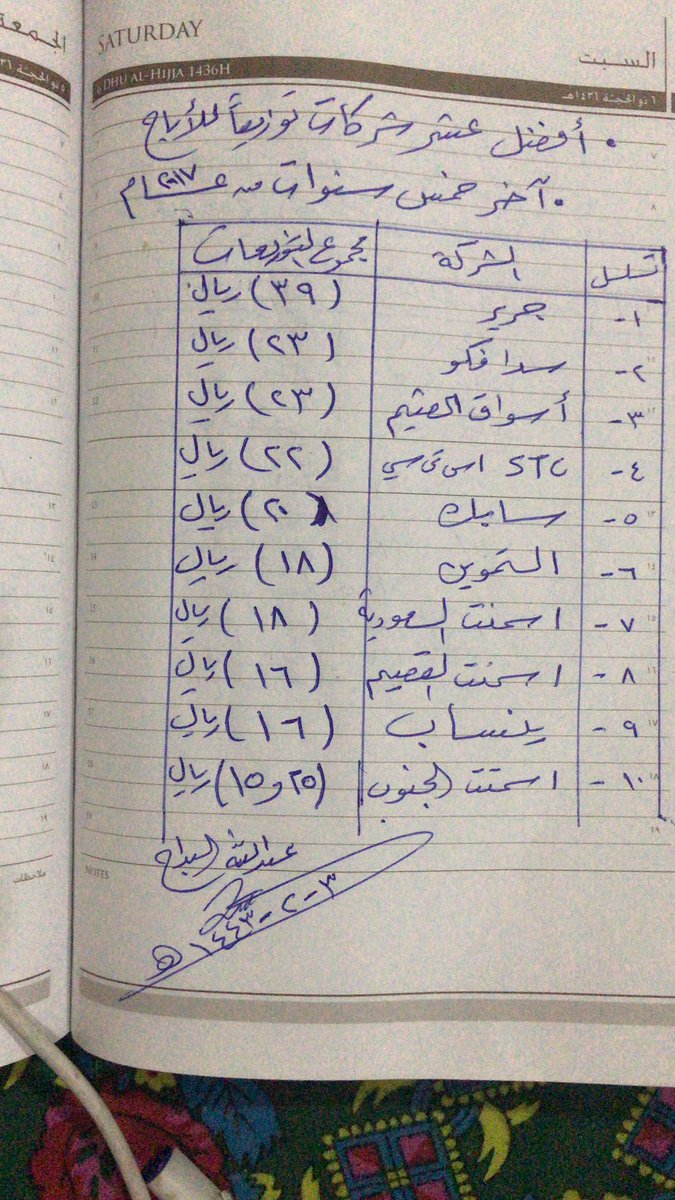 الجمعة
SATURDAY
السبت
6 DHU AL-HIJJA 1436H
٦ ذو الحجة ١٤٣٦هـ
• أفضل عشر شركات توزيعاً للأرباح
• آخر خمس سنوات من عام ٢٠١٧
تسلسل الشركة مجموع التوزيعات
١- جرير (٣٩) ريال
٢- سدافكو (٢٣) ريال
٣- أسواق العثيم (٢٣) ريال
٤- STC اس تي سي (٢٢) ريال
٥- سابك (٢٠) ريال
٦- التموين (١٨) ريال
٧- اسمنت السعودية (١٨) ريال
٨- اسمنت القصيم (١٦) ريال
٩- ينساب (١٦) ريال
١٠- اسمنت الجنوب (٢٥و١٥) ريال
عبدالله البداح
٣-٢-١٤٤٣هـ
NOTES
ملاحظات